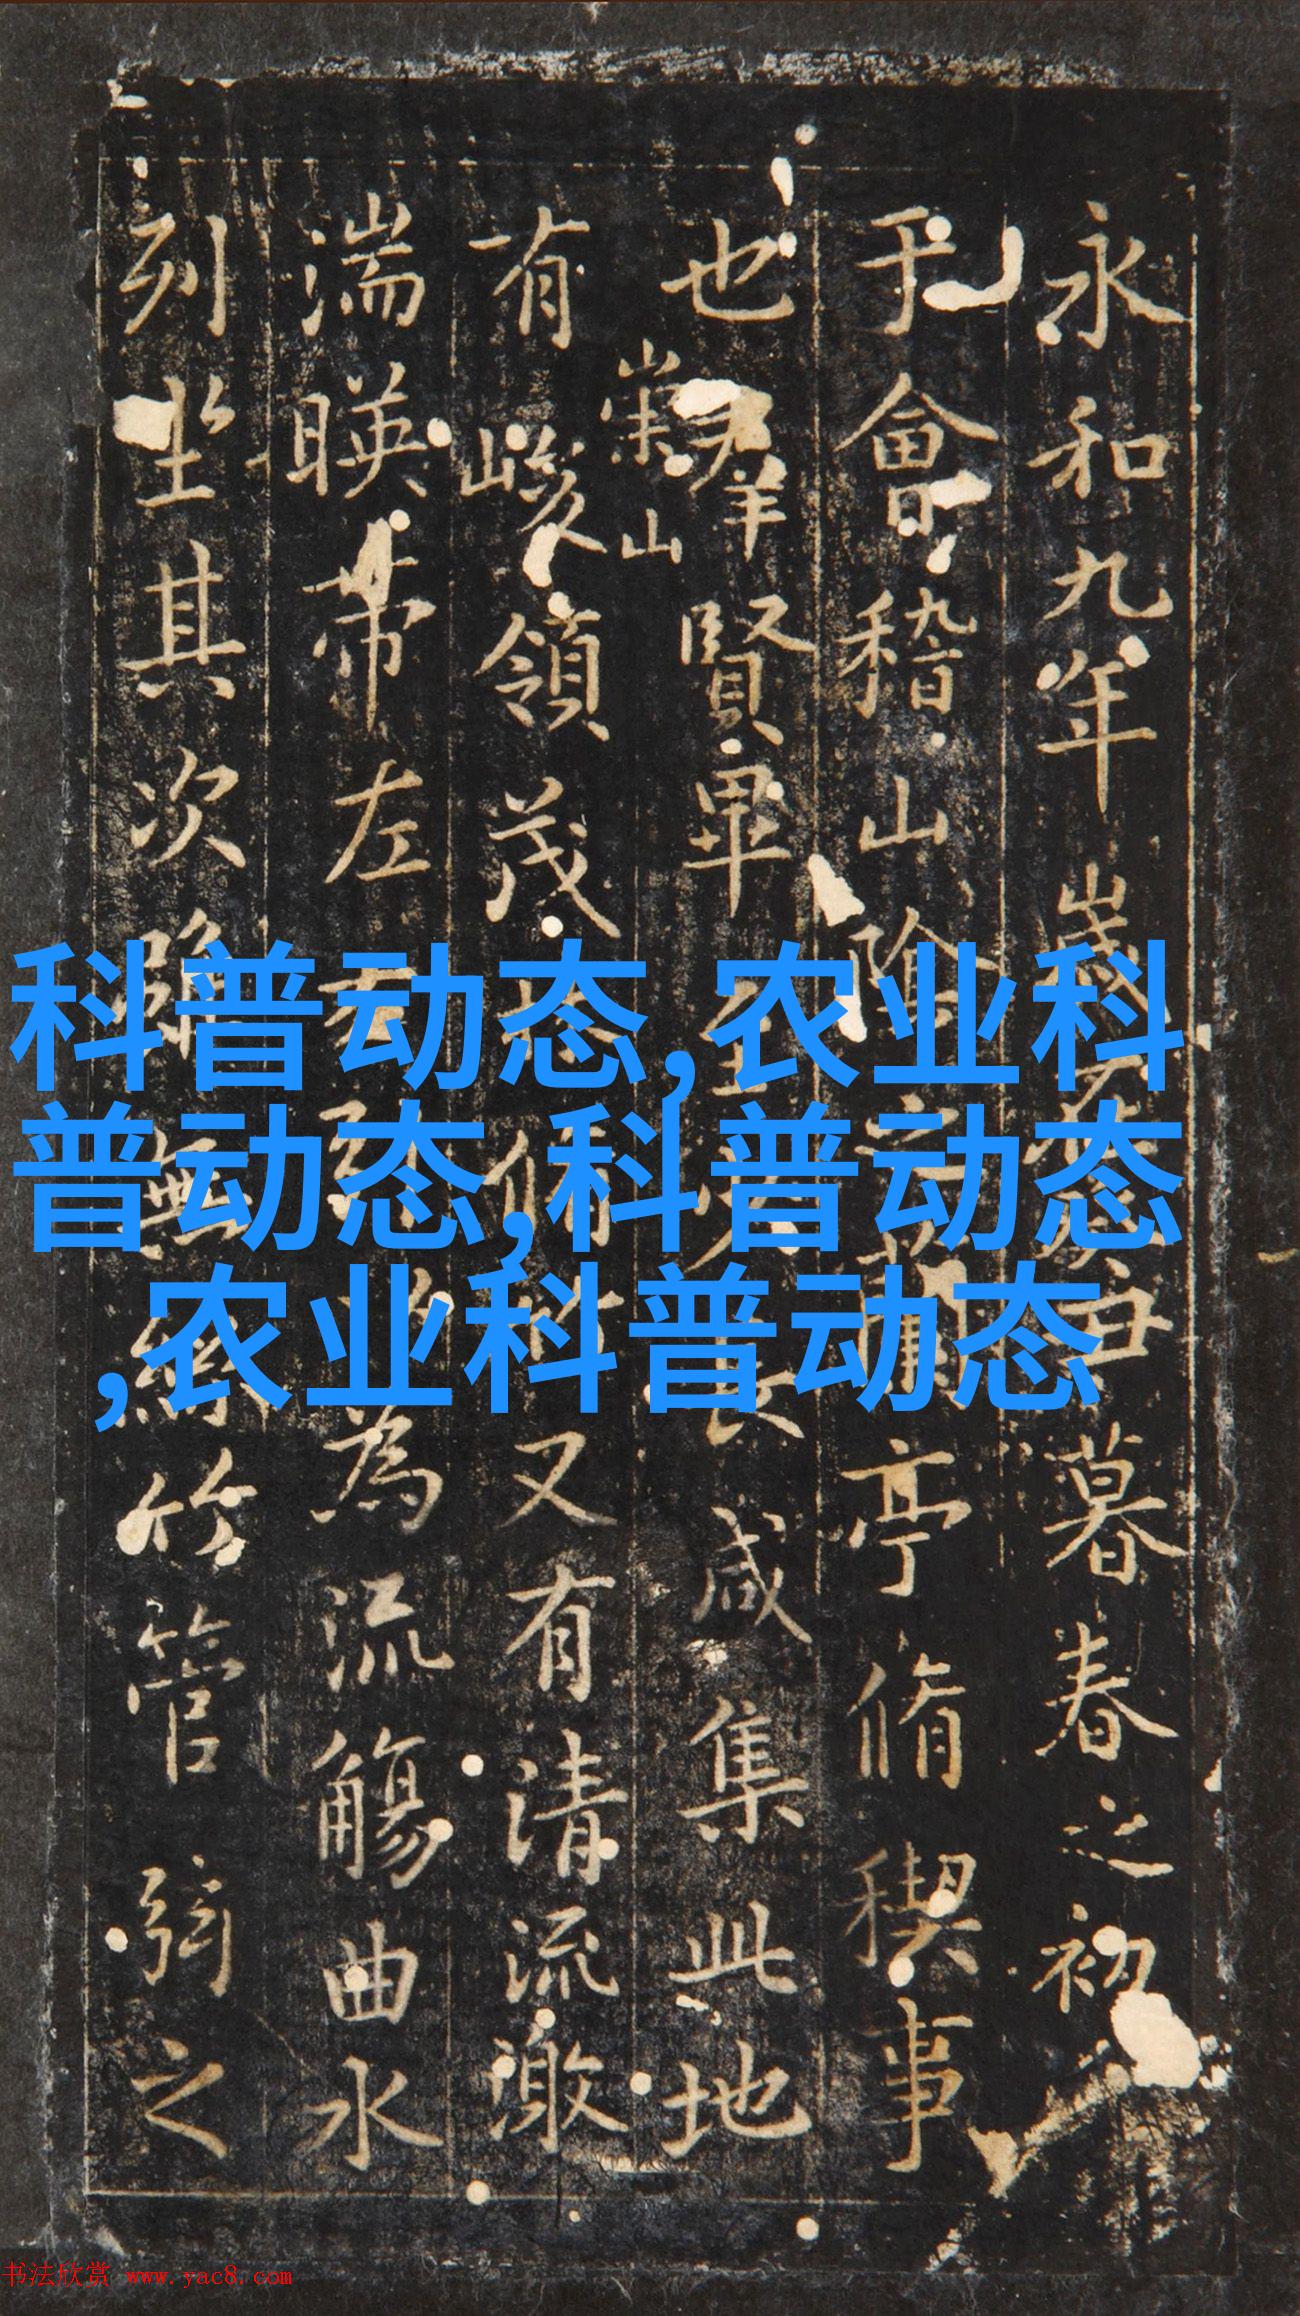 永和九年歲在癸丑暮春之初
于會稽山陰之蘭亭脩禊事
也羣賢畢至少長咸集此地
崇山
有峻領茂林脩竹又有清流激
湍暎帶左右引以為流觴曲水
列坐其次雖無絲竹管弦之
科普动态,农业科
普动态,科普动态
,农业科普动态
书法欣赏 www.yac8.com